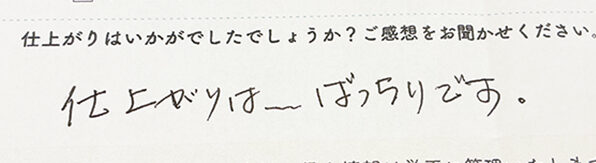 仕上がりはいかがでしたでしょうか？ご感想をお聞かせください。
仕上がりは〜ばっちりです。